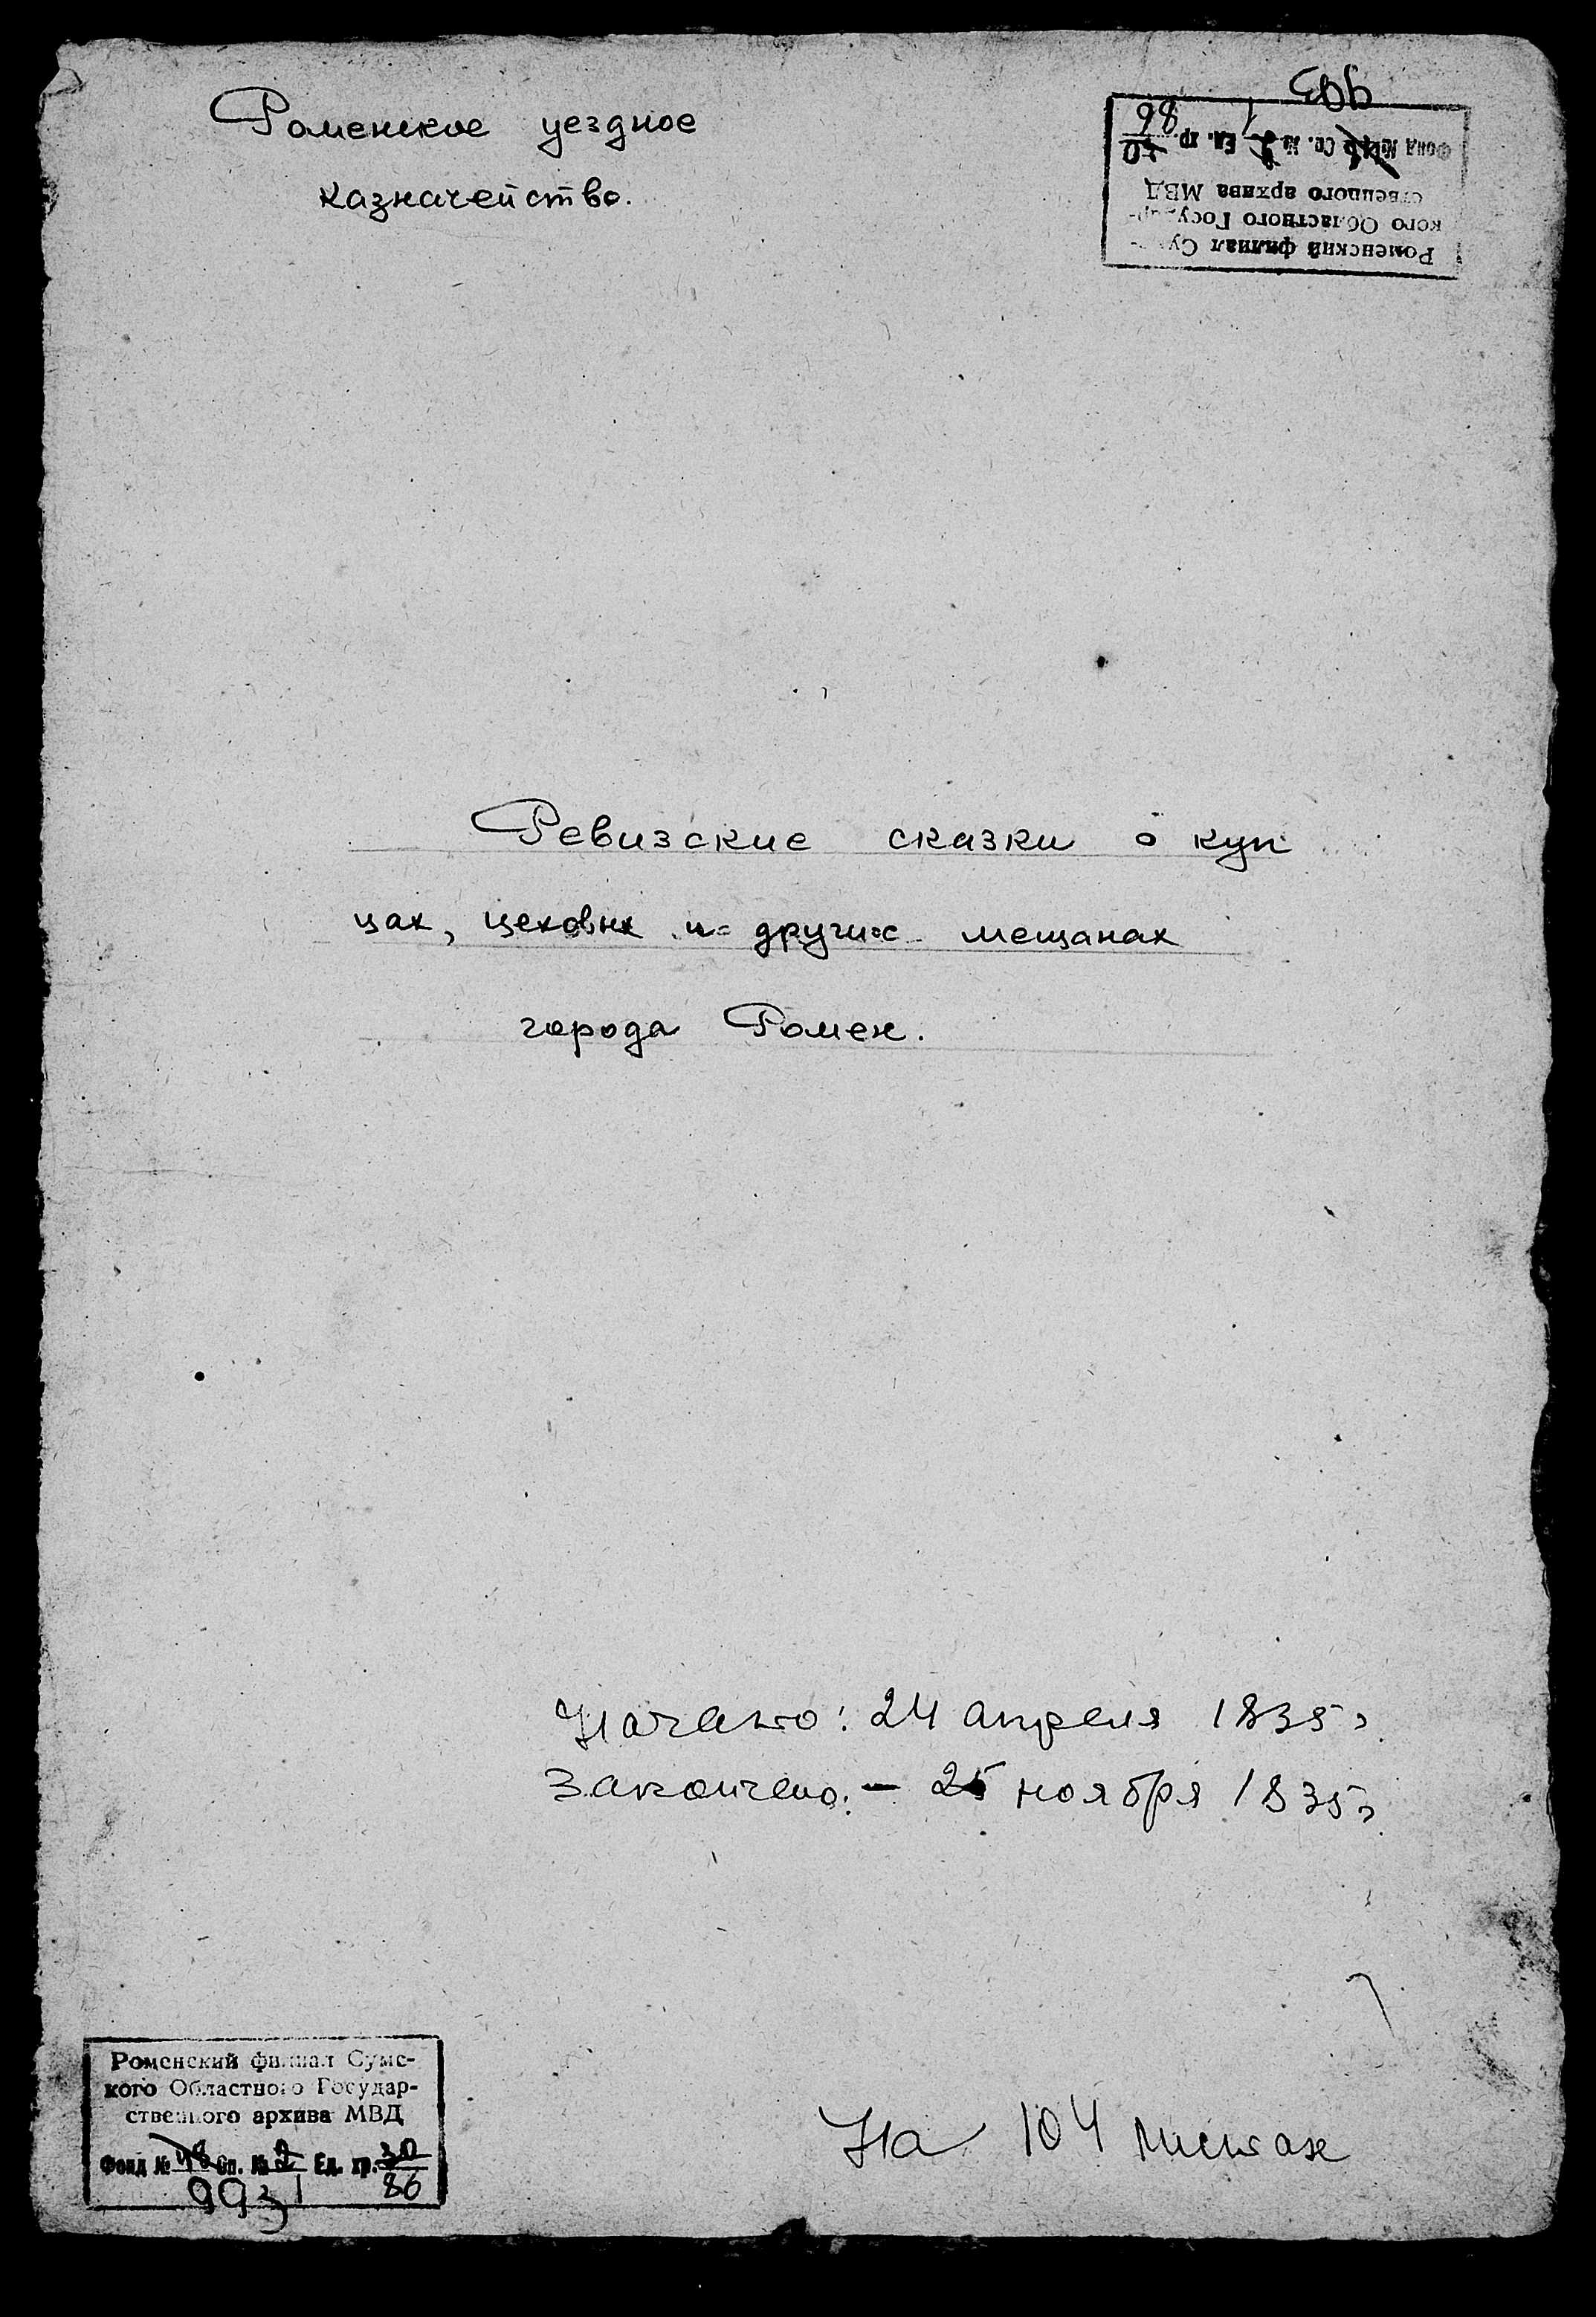 Роменское уездное
казначейство.
993
Роменский филиал Су
кого Областного Государ-
ственного архива МВД
Фонд № Оп. № 1 Ед. хр. 30
86
Ревизские сказки о куп
цах, цеховых и других мещанах
города Ромен.
Начато: 24 апреля 1835г.
Закончено: – 25 ноября 1835г.
Роменский филиал Сумс-
кого Областного Государ-
ственного архива МВД
Фонд № 48 Оп. № 2 Ед. хр. 30
993 1 86
На 104 листах